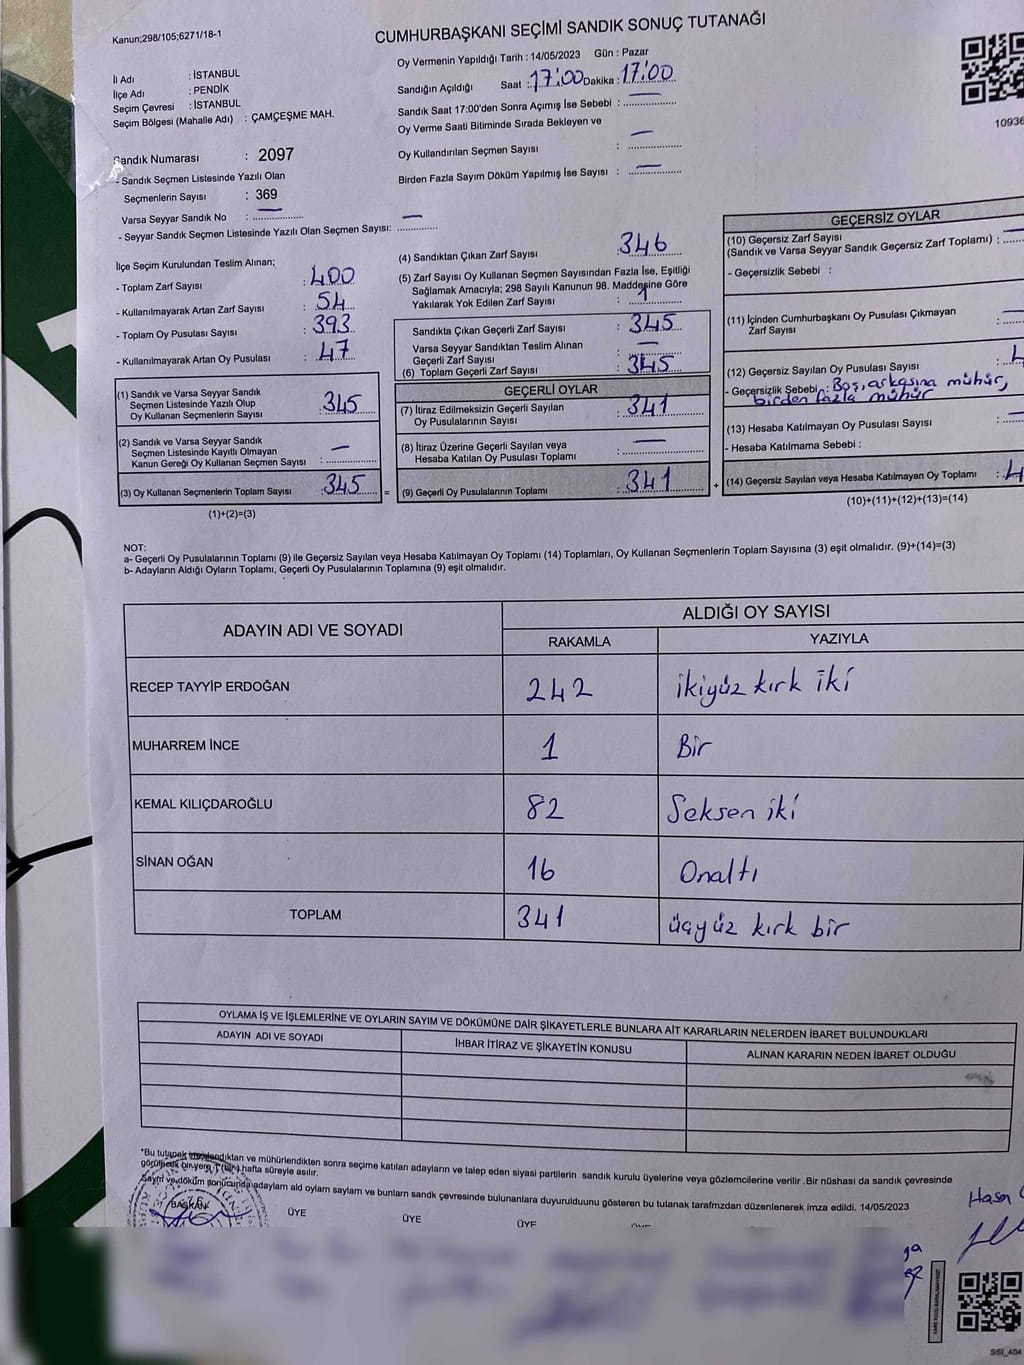 Kanun;298/105;6271/18-1
CUMHURBAŞKANI SEÇİMİ SANDIK SONUÇ TUTANAĞI
İl Adı : İSTANBUL
İlçe Adı : PENDİK
Seçim Çevresi : İSTANBUL
Seçim Bölgesi (Mahalle Adı) : ÇAMÇEŞME MAH.
Sandık Numarası : 2097
- Sandık Seçmen Listesinde Yazılı Olan
Seçmenlerin Sayısı : 369
Varsa Seyyar Sandık No : —
- Seyyar Sandık Seçmen Listesinde Yazılı Olan Seçmen Sayısı: —
Oy Vermenin Yapıldığı Tarih : 14/05/2023 Gün : Pazar
Sandığın Açıldığı Saat : 17:00 Dakika : 17:00
Sandık Saat 17:00'den Sonra Açımış İse Sebebi : —
Oy Verme Saati Bitiminde Sırada Bekleyen ve
Oy Kullandırılan Seçmen Sayısı : —
Birden Fazla Sayım Döküm Yapılmış İse Sayısı : —
10936
İlçe Seçim Kurulundan Teslim Alınan;
- Toplam Zarf Sayısı : 400
- Kullanılmayarak Artan Zarf Sayısı : 54
- Toplam Oy Pusulası Sayısı : 393
- Kullanılmayarak Artan Oy Pusulası : 47
(1) Sandık ve Varsa Seyyar Sandık
Seçmen Listesinde Yazılı Olup
Oy Kullanan Seçmenlerin Sayısı : 345
(2) Sandık ve Varsa Seyyar Sandık
Seçmen Listesinde Kayıtlı Olmayan
Kanun Gereği Oy Kullanan Seçmen Sayısı : —
(3) Oy Kullanan Seçmenlerin Toplam Sayısı : 345
(1)+(2)=(3)
=
(4) Sandıktan Çıkan Zarf Sayısı : 346
(5) Zarf Sayısı Oy Kullanan Seçmen Sayısından Fazla İse, Eşitliği
Sağlamak Amacıyla; 298 Sayılı Kanunun 98. Maddesine Göre
Yakılarak Yok Edilen Zarf Sayısı : 1
Sandıkta Çıkan Geçerli Zarf Sayısı : 345
Varsa Seyyar Sandıktan Teslim Alınan
Geçerli Zarf Sayısı : —
(6) Toplam Geçerli Zarf Sayısı : 345
GEÇERLİ OYLAR
(7) İtiraz Edilmeksizin Geçerli Sayılan
Oy Pusulalarının Sayısı : 341
(8) İtiraz Üzerine Geçerli Sayılan veya
Hesaba Katılan Oy Pusulası Toplamı : —
(9) Geçerli Oy Pusulalarının Toplamı : 341
+
GEÇERSİZ OYLAR
(10) Geçersiz Zarf Sayısı
(Sandık ve Varsa Seyyar Sandık Geçersiz Zarf Toplamı) : —
- Geçersizlik Sebebi :
(11) İçinden Cumhurbaşkanı Oy Pusulası Çıkmayan
Zarf Sayısı : —
(12) Geçersiz Sayılan Oy Pusulası Sayısı : 4
- Geçersizlik Sebebi : Boş, arkasına mühür,
birden fazla mühür
(13) Hesaba Katılmayan Oy Pusulası Sayısı : —
- Hesaba Katılmama Sebebi :
(14) Geçersiz Sayılan veya Hesaba Katılmayan Oy Toplamı : 4
(10)+(11)+(12)+(13)=(14)
NOT:
a- Geçerli Oy Pusulalarının Toplamı (9) ile Geçersiz Sayılan veya Hesaba Katılmayan Oy Toplamı (14) Toplamları, Oy Kullanan Seçmenlerin Toplam Sayısına (3) eşit olmalıdır. (9)+(14)=(3)
b- Adayların Aldığı Oyların Toplamı, Geçerli Oy Pusulalarının Toplamına (9) eşit olmalıdır.
ADAYIN ADI VE SOYADI ALDIĞI OY SAYISI
RAKAMLA YAZIYLA
RECEP TAYYİP ERDOĞAN 242 ikiyüz kırk iki
MUHARREM İNCE 1 Bir
KEMAL KILIÇDAROĞLU 82 Seksen iki
SİNAN OĞAN 16 Onaltı
TOPLAM 341 üçyüz kırk bir
OYLAMA İŞ VE İŞLEMLERİNE VE OYLARIN SAYIM VE DÖKÜMÜNE DAİR ŞİKAYETLERLE BUNLARA AİT KARARLARIN NELERDEN İBARET BULUNDUKLARI
ADAYIN ADI VE SOYADI İHBAR İTİRAZ VE ŞİKAYETİN KONUSU ALINAN KARARIN NEDEN İBARET OLDUĞU
*Bu tutanak imzalandıktan ve mühürlendikten sonra seçime katılan adayların ve talep eden siyasi partilerin sandık kurulu üyelerine veya gözlemcilerine verilir .Bir nüshası da sandık çevresinde
görülecek bir yere 1 (bir) hafta süreyle asılır.
Sayım ve döküm sonucunda adayların ald oyları sayları ve bunların sandık çevresinde bulunanlara duyurulduunu gösteren bu tutanak tarafmzdan düzenlenerek imza edildi. 14/05/2023
BAŞKAN ÜYE ÜYE ÜYE ÜYE
Hasa
SSI_404